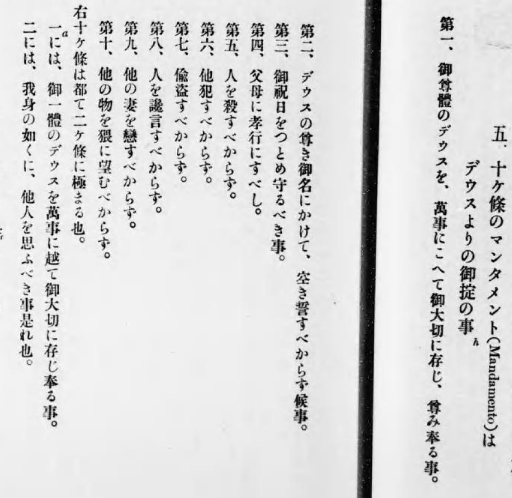 五、十ケ條のマンタメント(Mandamento)は
デウスよりの御掟の事
第一、御尊體のデウスを、萬事にこへて御大切に存じ、尊み奉る事。
第二、デウスの尊き御名にかけて、空き誓すべからず候事。
第三、御祝日をつとめ守るべき事。
第四、父母に孝行にすべし。
第五、人を殺すべからず。
第六、他犯すべからず。
第七、偸盗すべからず。
第八、人を讒言すべからず。
第九、他の妻を戀すべからず。
第十、他の物を猥に望むべからず。
右十ケ條は都て二ケ條に極まる也。
一には、御一體のデウスを萬事に越て御大切に存じ奉る事。
二には、我身の如くに、他人を思ふべき事是れ也。